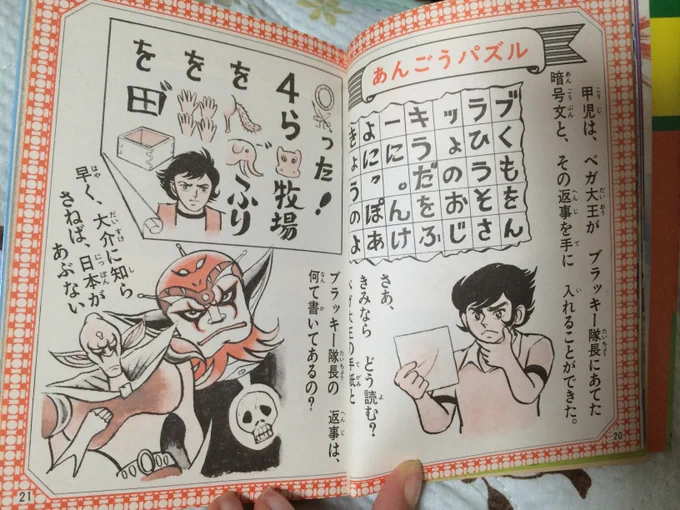 あんごうパズル
甲児は、ベガ大王が ブラッキー隊長にあてた
暗号文と、その返事を手に 入れることができた。
ブくもをん
ラひうそさ
ッょのおじ
キうだをふ
ーに。んけ
よにっぽあ
きょうのよ
さあ、
きみなら どう読む?
ベガ大王の手紙と
20
ブラッキー隊長の 返事は、
何て書いてあるの?
った!
4ら牧場
を ふり
を
を田゛
早く、大介に知ら
さねば、日本が
あぶない
21